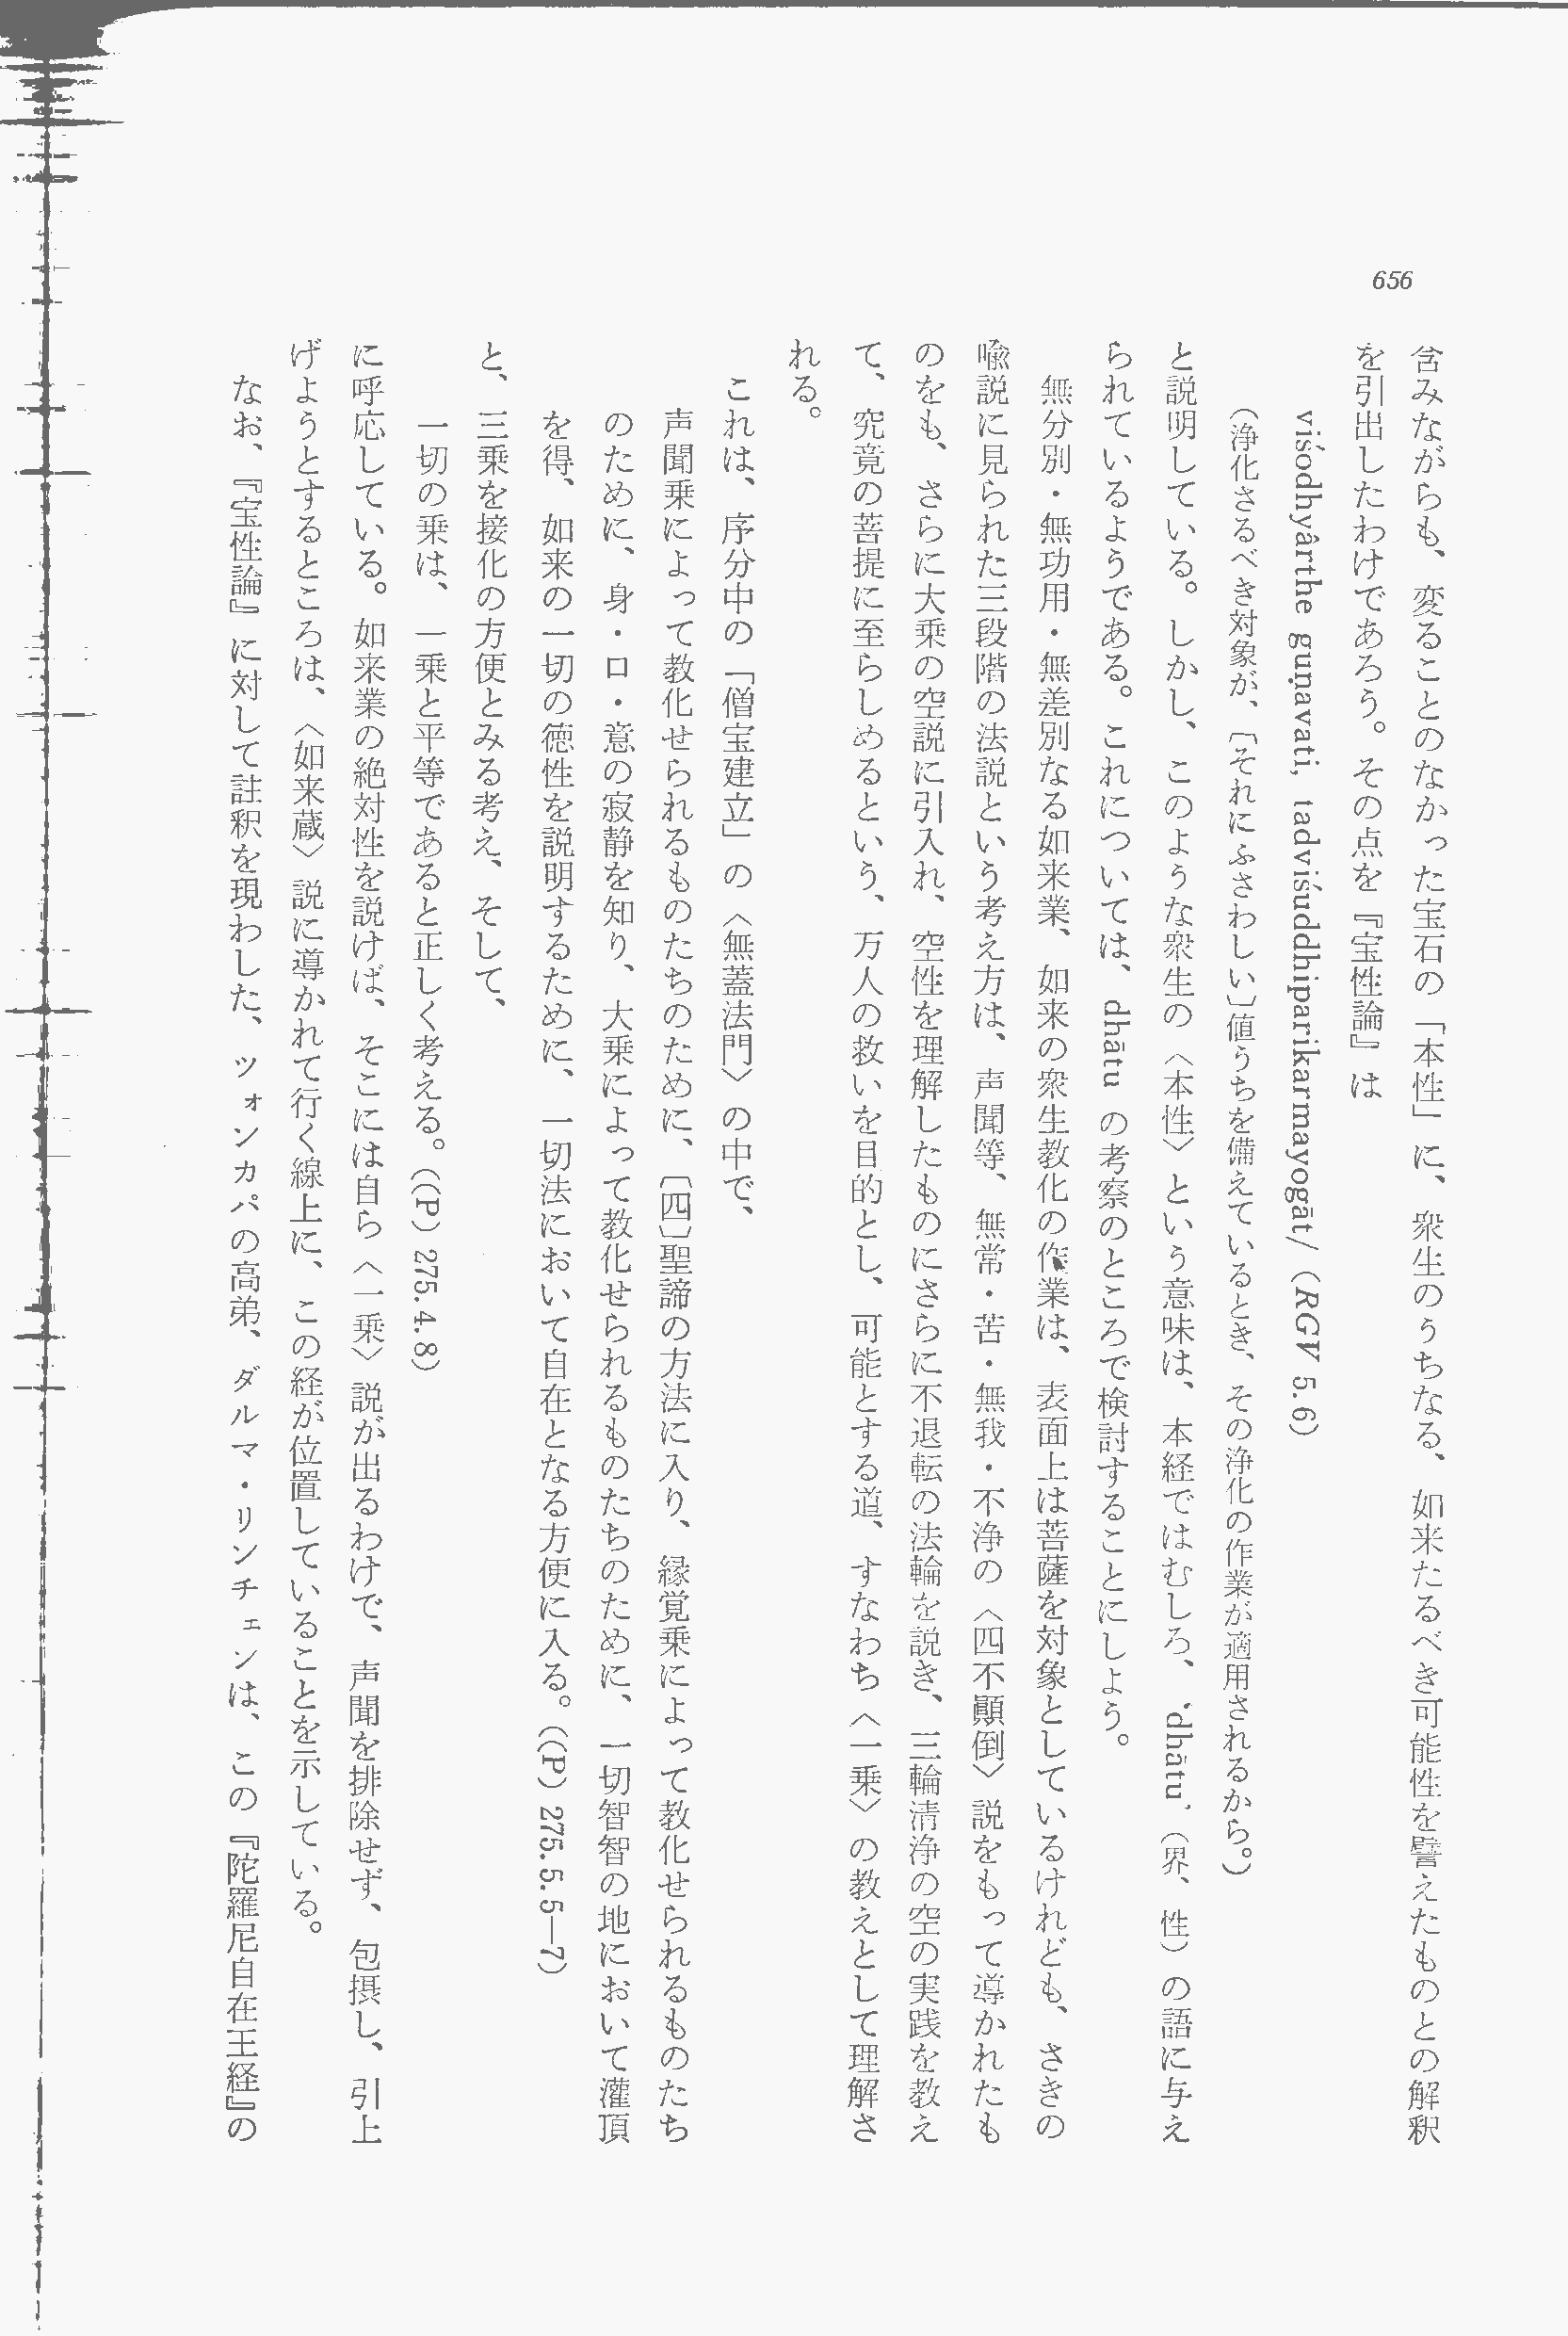 656
含みながらも、変ることのなかった宝石の「本性」に、衆生のうちなる、如来たるべき可能性を譬えたものとの解釈
を引出したわけであろう。その点を『宝性論』は
viśodhyârthe guṇavati, tadviśuddhiparikarmayogāt/ (RGV 5.6)
(浄化さるべき対象が、〔それにふさわしい〕値うちを備えているとき、その浄化の作業が適用されるから。)
と説明している。しかし、このような衆生の〈本性〉という意味は、本経ではむしろ、‘dhātu’(界、性)の語に与え
られているようである。これについては、dhātu の考察のところで検討することにしよう。
無分別・無功用・無差別なる如来業、如来の衆生教化の作業は、表面上は菩薩を対象としているけれども、さきの
喩説に見られた三段階の法説という考え方は、声聞等、無常・苦・無我・不浄の〈四不顚倒〉説をもって導かれたも
のをも、さらに大乗の空説に引入れ、空性を理解したものにさらに不退転の法輪を説き、三輪清浄の空の実践を教え
て、究竟の菩提に至らしめるという、万人の救いを目的とし、可能とする道、すなわち〈一乗〉の教えとして理解さ
れる。
これは、序分中の「僧宝建立」の〈無蓋法門〉の中で、
声聞乗によって教化せられるものたちのために、〔四〕聖諦の方法に入り、縁覚乗によって教化せられるものたち
のために、身・口・意の寂静を知り、大乗によって教化せられるものたちのために、一切智智の地において灌頂
を得、如来の一切の徳性を説明するために、一切法において自在となる方便に入る。((P) 275.5.5—7)
と、三乗を接化の方便とみる考え、そして、
一切の乗は、一乗と平等であると正しく考える。((P) 275.4.8)
に呼応している。如来業の絶対性を説けば、そこには自ら〈一乗〉説が出るわけで、声聞を排除せず、包摂し、引上
げようとするところは、〈如来蔵〉説に導かれて行く線上に、この経が位置していることを示している。
なお、『宝性論』に対して註釈を現わした、ツォンカパの高弟、ダルマ・リンチェンは、この『陀羅尼自在王経』の